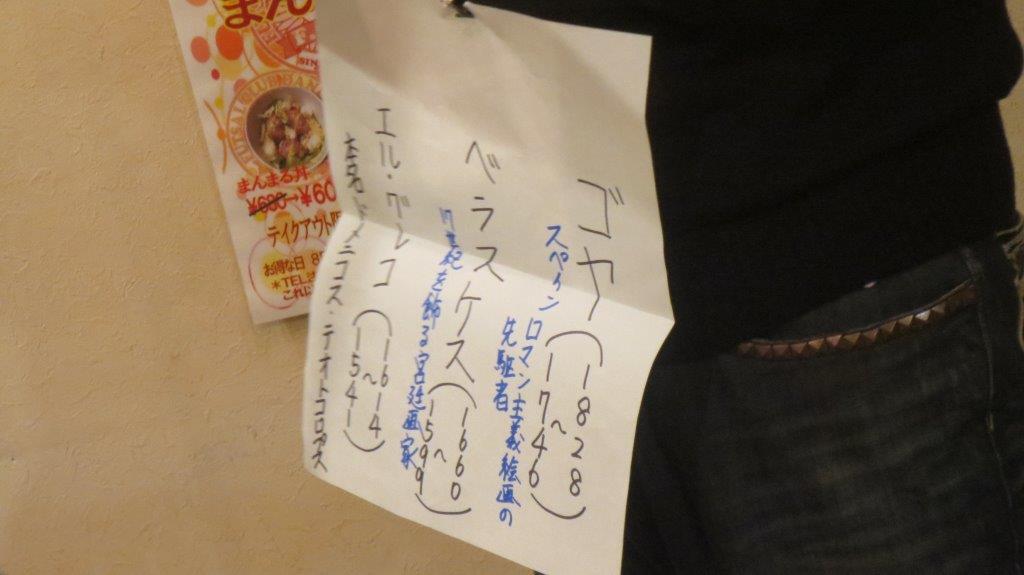 ゴヤ(1746~1828)
スペインロマン主義絵画の
先駆者
ベラスケス(1599~1660)
17世紀を飾る宮廷画家
エル・グレコ(1541~1614)
本名ドメニコス・テオトコロプス
まん
まんまる丼
¥690→¥60
テイクアウト限
お得な日
*TEL
これに